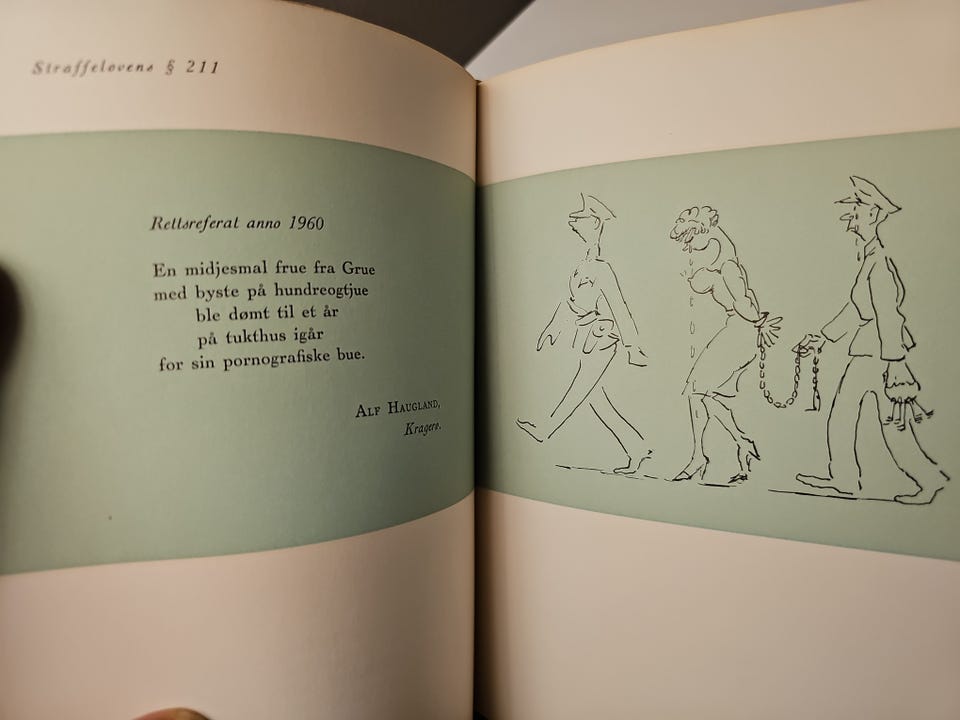 Straffelovens § 211
Rettsreferat anno 1960
En midjesmal frue fra Grue
med byste på hundreogtjue
ble dømt til et år
på tukthus igår
for sin pornografiske bue.
Alf Haugland,
Kragerø.